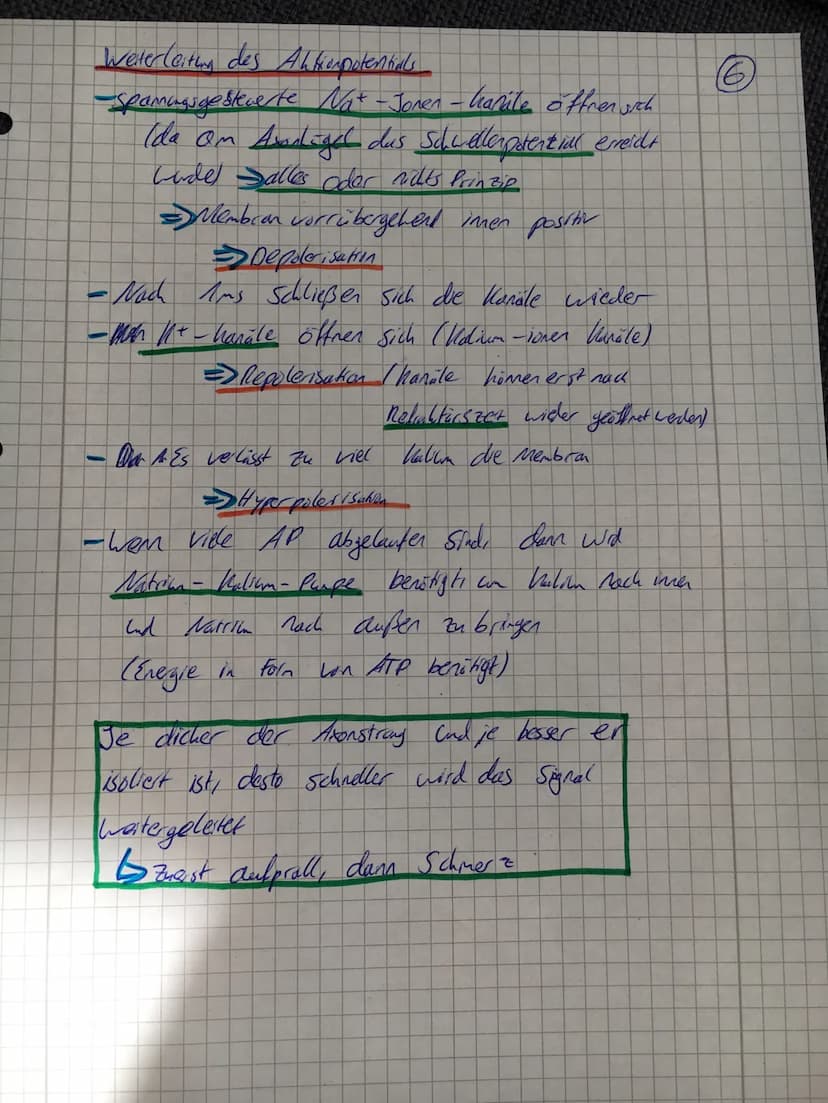 Weiterleitung des Aktionpotentials
6
- spannungsgesteuerte Na+-Ionen-Kanäle öffnen sich
(da am Axonhügel das Schwellenpotential erreicht
wurde) => alles oder nichts Prinzip
=> Membran vorrübergehend innen positiv
=> Depolarisation
- Nach 1ms schließen sich die Kanäle wieder
- K+-Kanäle öffnen sich (Kalium-ionen Kanäle)
=> Repolarisation (Kanäle können erst nach
Refraktärszeit wider geöffnet werden)
- Es verlässt zu viel Kalium die Membran
=> Hyperpolarisation
- Wenn viele AP abgelaufen sind, dann wird
Natrium-Kalium-Pumpe benötigt, um Kalium nach innen
und Natrium nach außen zu bringen
(Energie in Form von ATP benötigt)
Je dicker der Axonstrang und je besser er
isoliert ist, desto schneller wird das Signal
weitergeleitet
↳ zuerst aufprall, dann Schmerz